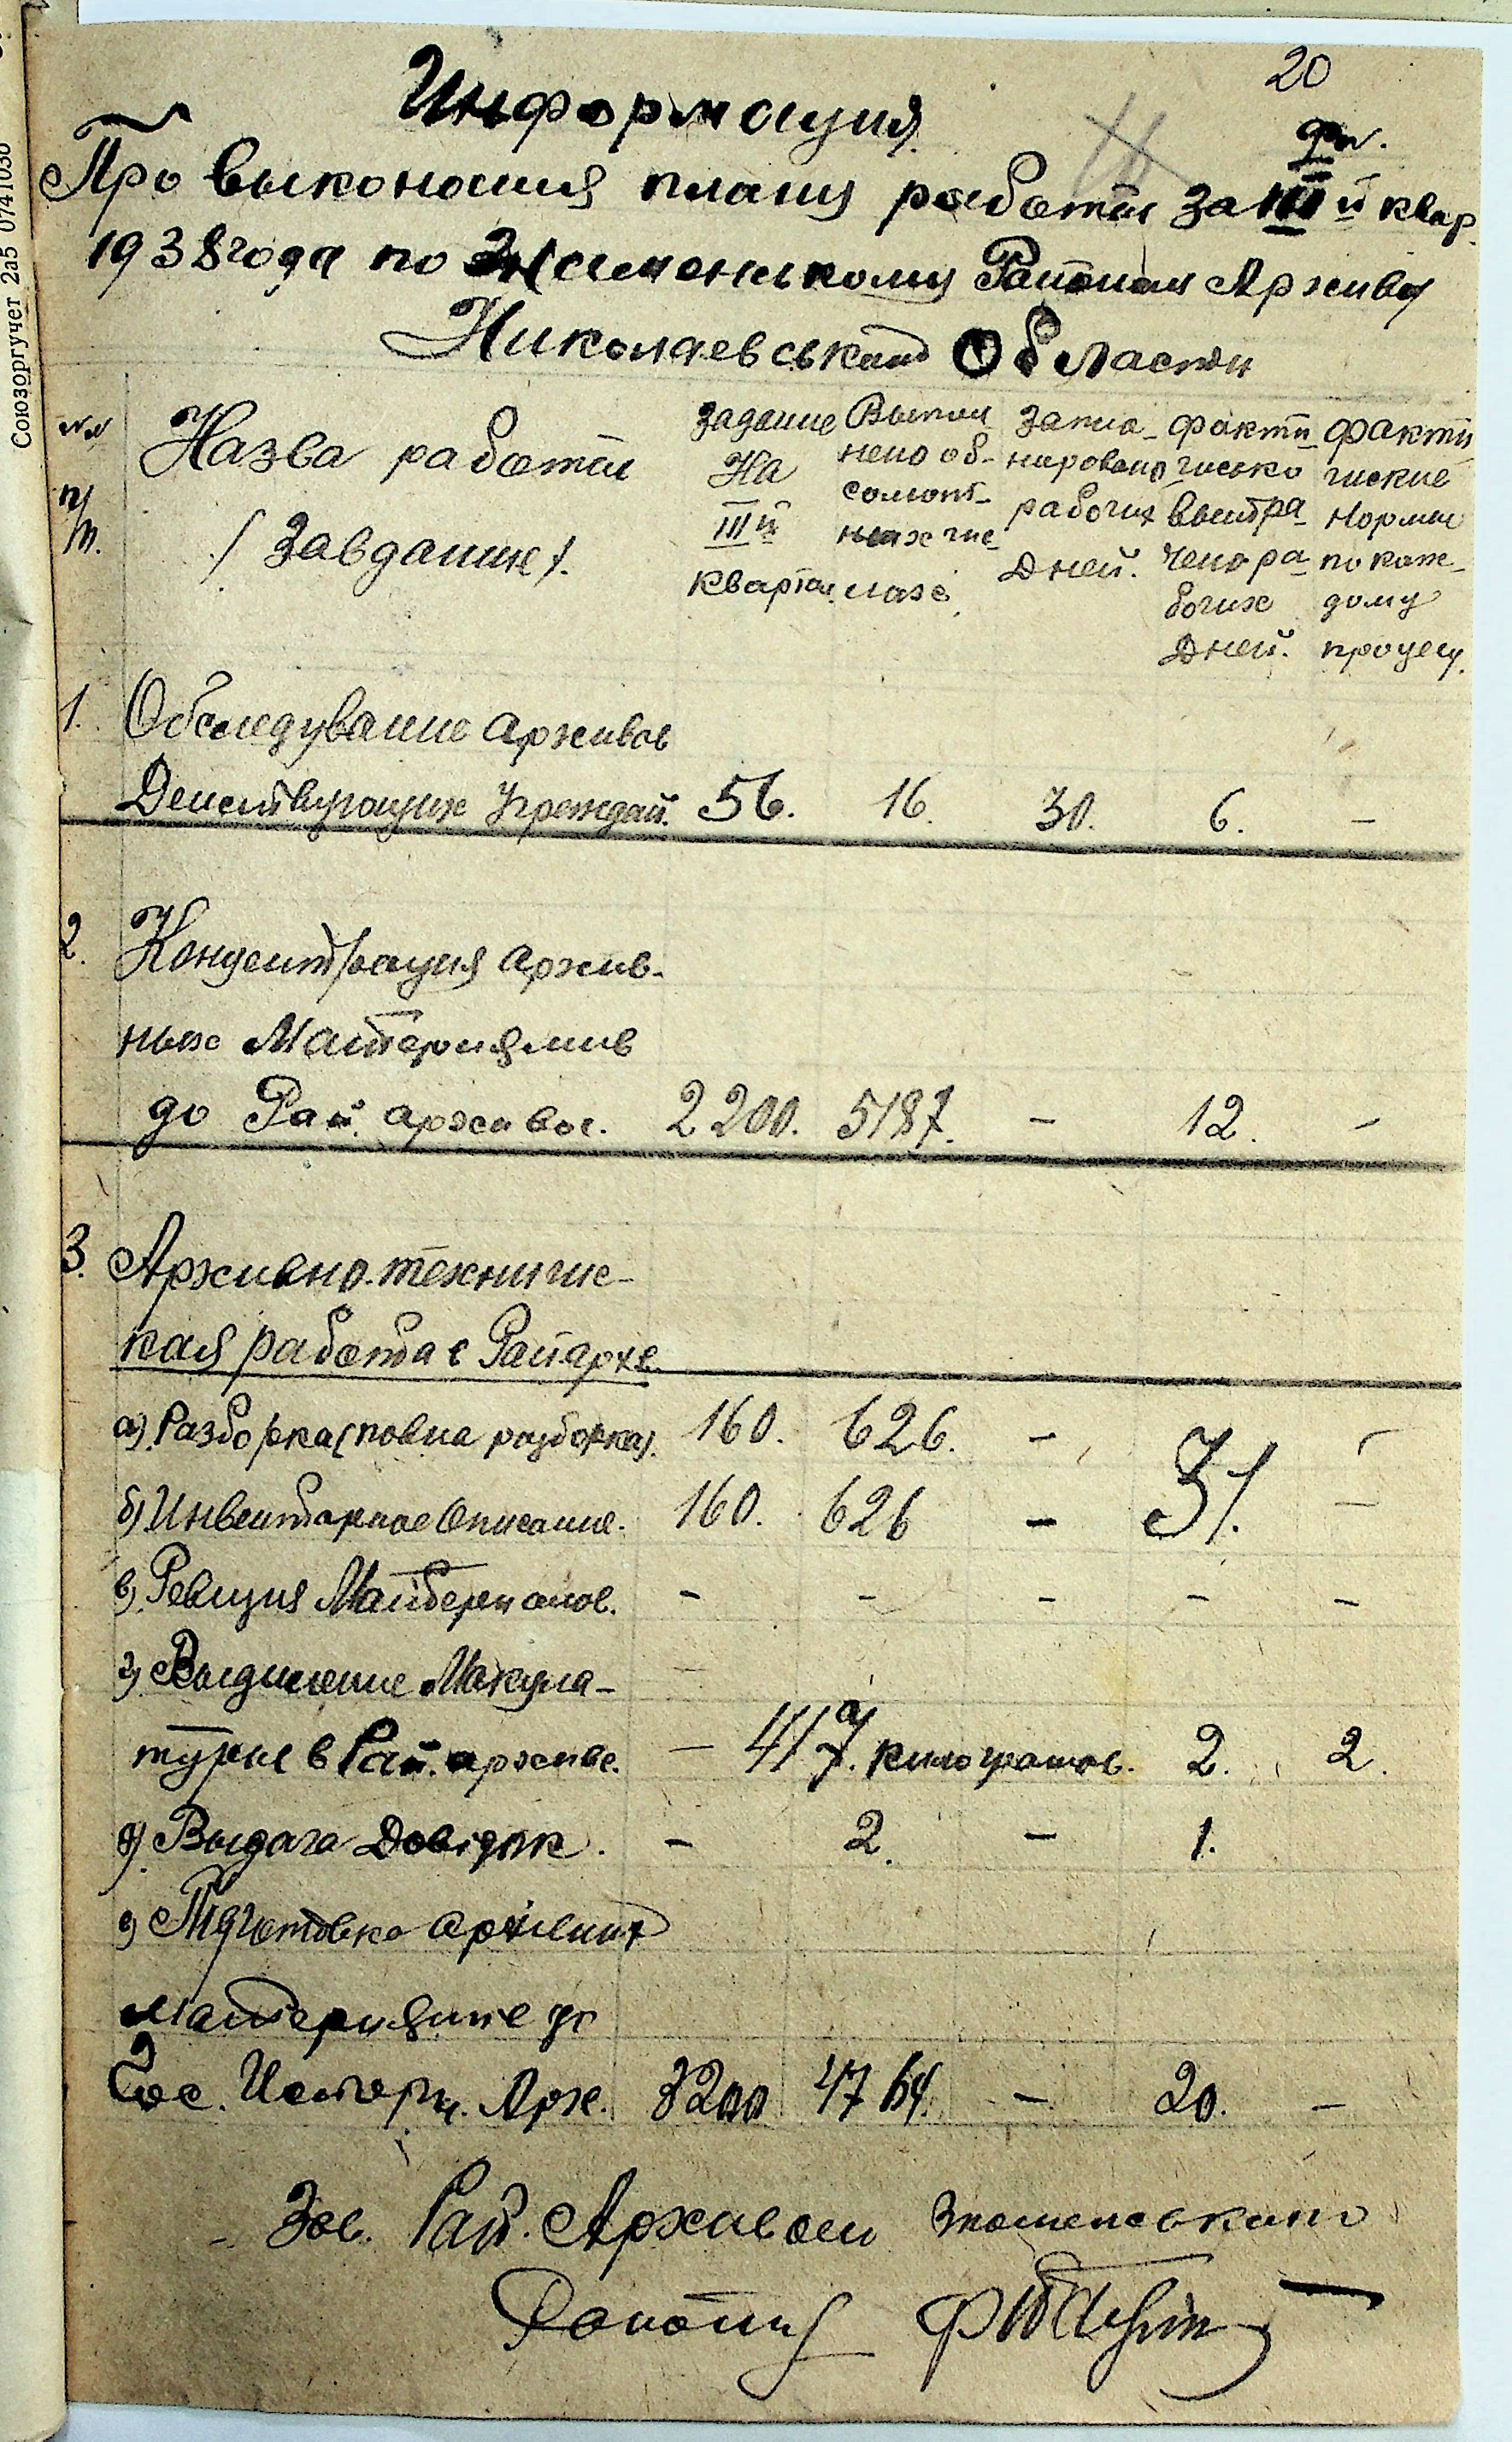 20
Информация
Про выконония плану работы за III й квар.
1938 года по Знаменському Районом Архиву
Николаевськой Области
№№ п/п.
Назва работы
/ Завдание /.
Задание На III й квартал
Выпол нено об- солют- ных чис лах
Запла- нировано рабочих Дней.
факти- ческо вытра- чено ра- бочих Дней.
факти- ческие Нормы по каж- дому процесу.
1. Обследувание архивов
Действующих Учрежден. 56. 16. 30. 6. –
2. Концентрация архив-
ных Материялив
до Рай. архивов. 2200. 5187. – 12. –
3. Архивно-техничес-
кая работа в Райархе.
а) Разборка (повна разборка). 160. 626. – 31. –
б) Инвентарное Описание. 160. 626 – –
в) Ревизия Материалов. – – – – –
г) Выдиление Макула-
туры в Рай. архиве. – 417. килограмов. 2. 2.
д) Выдача Довідок. – 2. – 1.
е) Підготовка архивних
материялив до
Гос. Истори. Арх. 3200 4764. – 20. –
Зав. Рай. Архивом Знаменського
Района
Союзоргучет 2а5 0741030